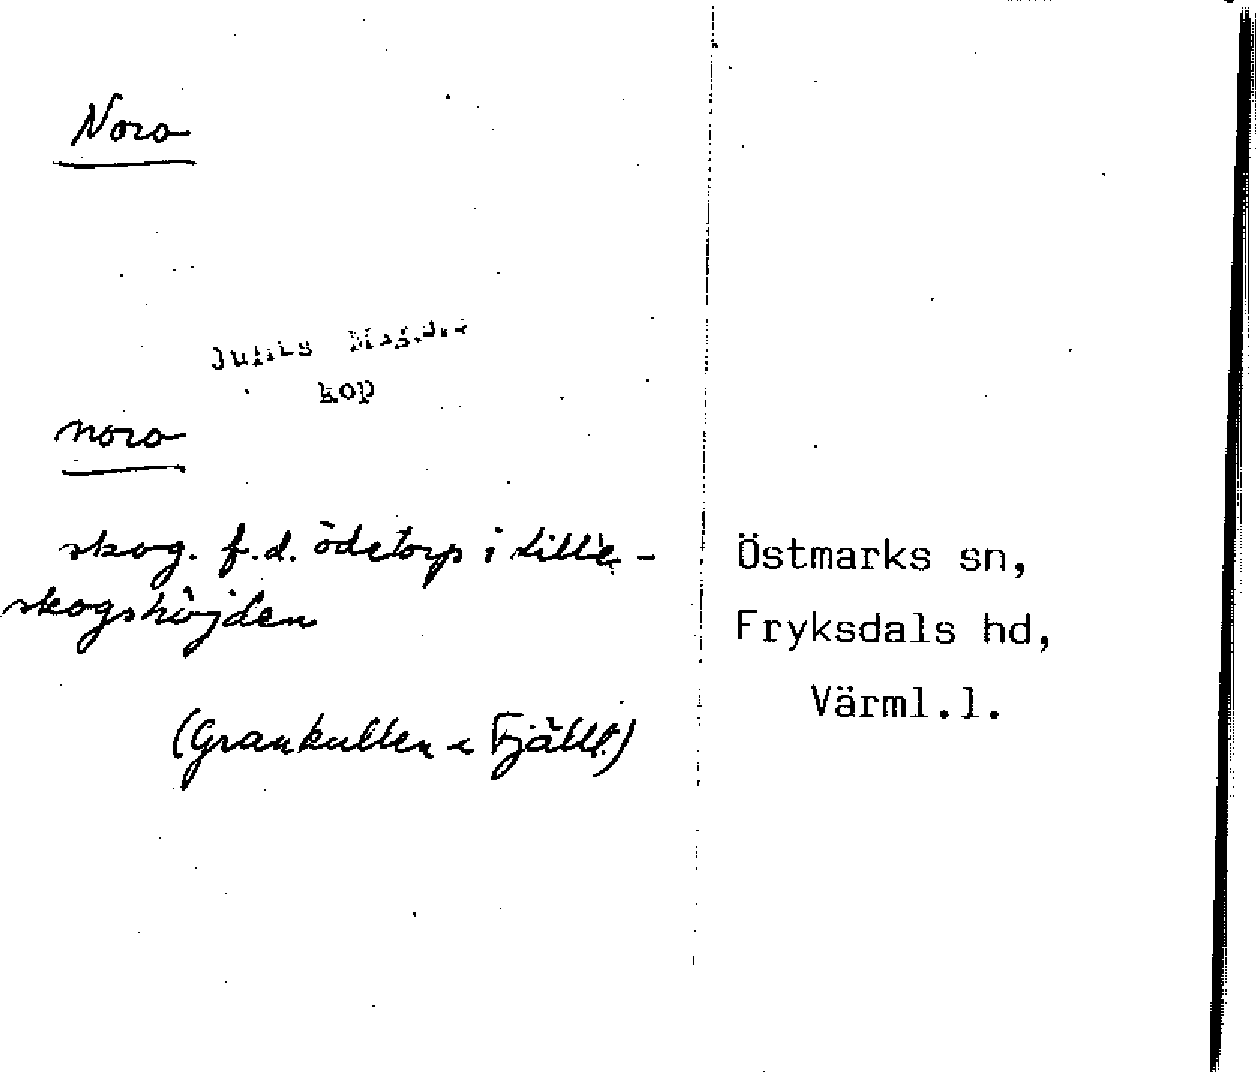 Noro
kop
noro
skog. f.d. ödetorp i Lille-
skogshöjden
(Grankullen
Östmarks sn,
Fryksdals hd,
Värml.l.